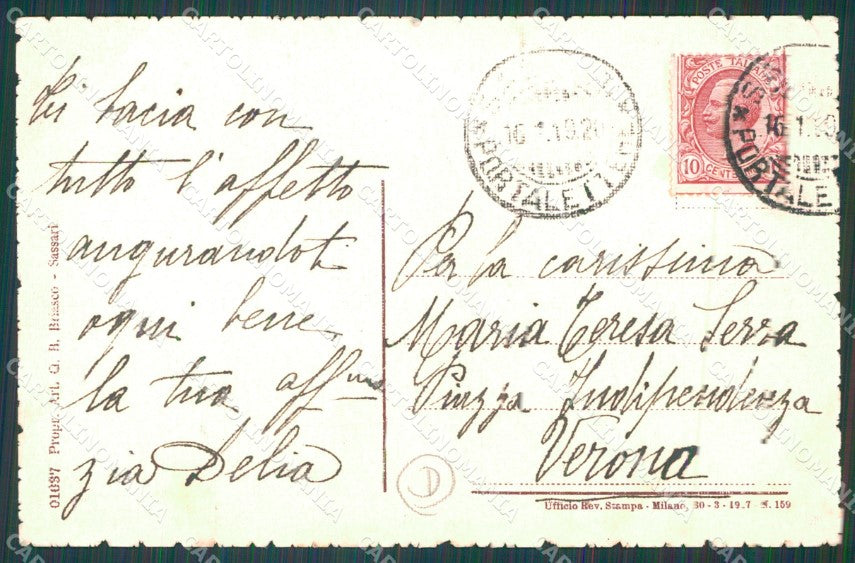 Ti bacia con
tutto l'affetto
augurandoti
ogni bene
la tua aff.ma
zia Delia
Per la carissima
Maria Teresa Serra
Piazza Indipendenza
Verona
POSTE ITALIANE
10 CENT
16.1.19.20
* PORTALETTERE
16.1.19
* PORTALE
01637 Propr. Art. G. B. Brusco - Sassari
D
Ufficio Rev. Stampa - Milano, 30 - 3 - 19.7 - N. 159
CARTOLINOMANIA